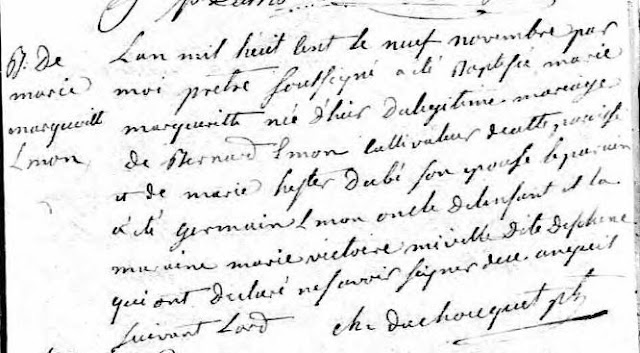 B. de
marie
marguerite
Emon
Lan mil huit cent le neuf novembre par
moi pretre soussigné a eté Baptisée marie
marguerite née d'hier du legitime mariage
de Bernard Emon cultivateur de cette paroisse
et de marie hester dubé son epouse le parain
a eté germain Emon oncle de lenfant et la
maraine marie victoire miville dite dechene
qui ont declaré ne savoir signer de ce enquis
suivant Lord